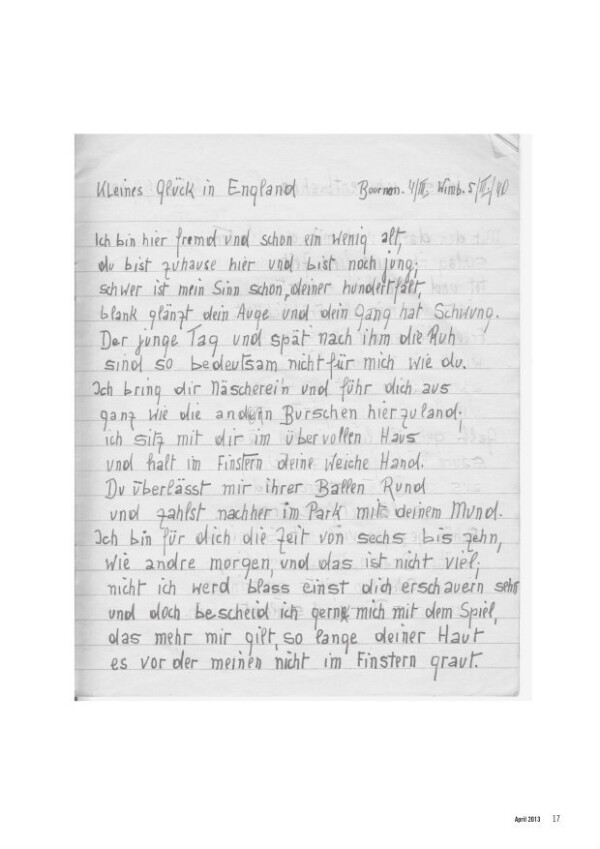 Kleines Glück in England Bournem. 4/III, Wimb. 5/III/40
Ich bin hier fremd und schon ein wenig alt,
du bist zuhause hier und bist noch jung;
schwer ist mein Sinn schon, deiner hundeltfält,
blank glänzt dein Auge und dein Gang hat Schwung.
Der junge Tag und spät nach ihm die Ruh
sind so bedeutsam nicht für mich wie du.
Ich bring dir Näscherein und führ dich aus
ganz wie die andern Burschen hierzuland;
ich sitz mit dir im übervollen Haus
und halt im Finstern deine weiche Hand.
Du überlässt mir ihrer Ballen Rund
und zahlst nachher im Park mit deinem Mund.
Ich bin für dich die Zeit von sechs bis zehn,
wie andre morgen, und das ist nicht viel;
nicht ich werd blass einst dich erschauern sehn
und doch bescheid ich gern mich mit dem Spiel,
das mehr mir gilt, so lange deiner Haut
es vor der meinen nicht im Finstern graut.
April 2013 17